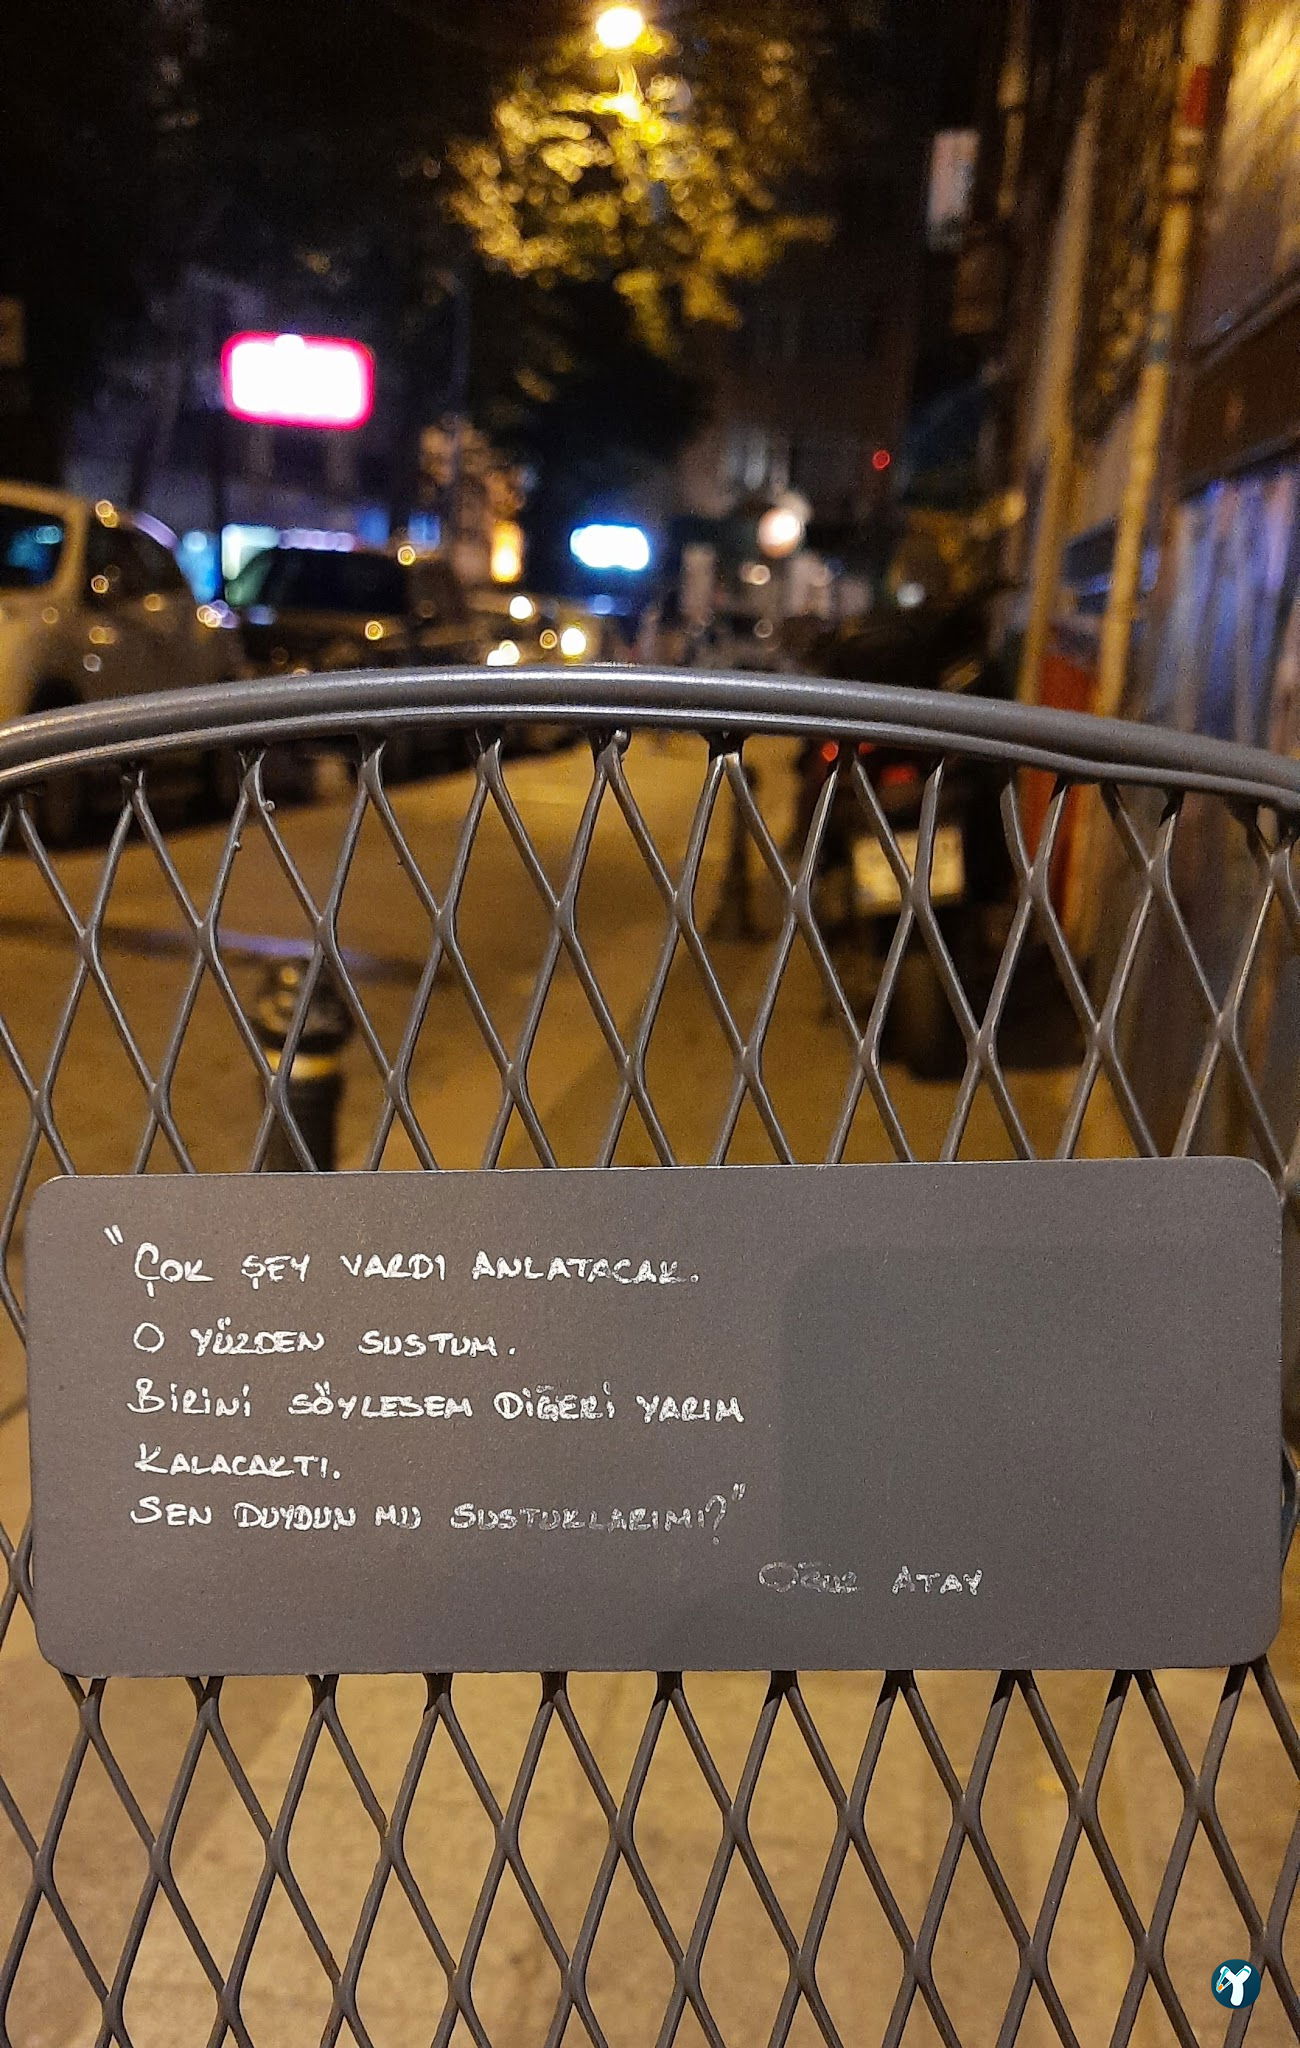 "Çok şey vardı anlatacak.
O yüzden sustum.
Birini söylesem diğeri yarım
kalacaktı.
Sen duydun mu sustuklarımı?"
Oğuz Atay